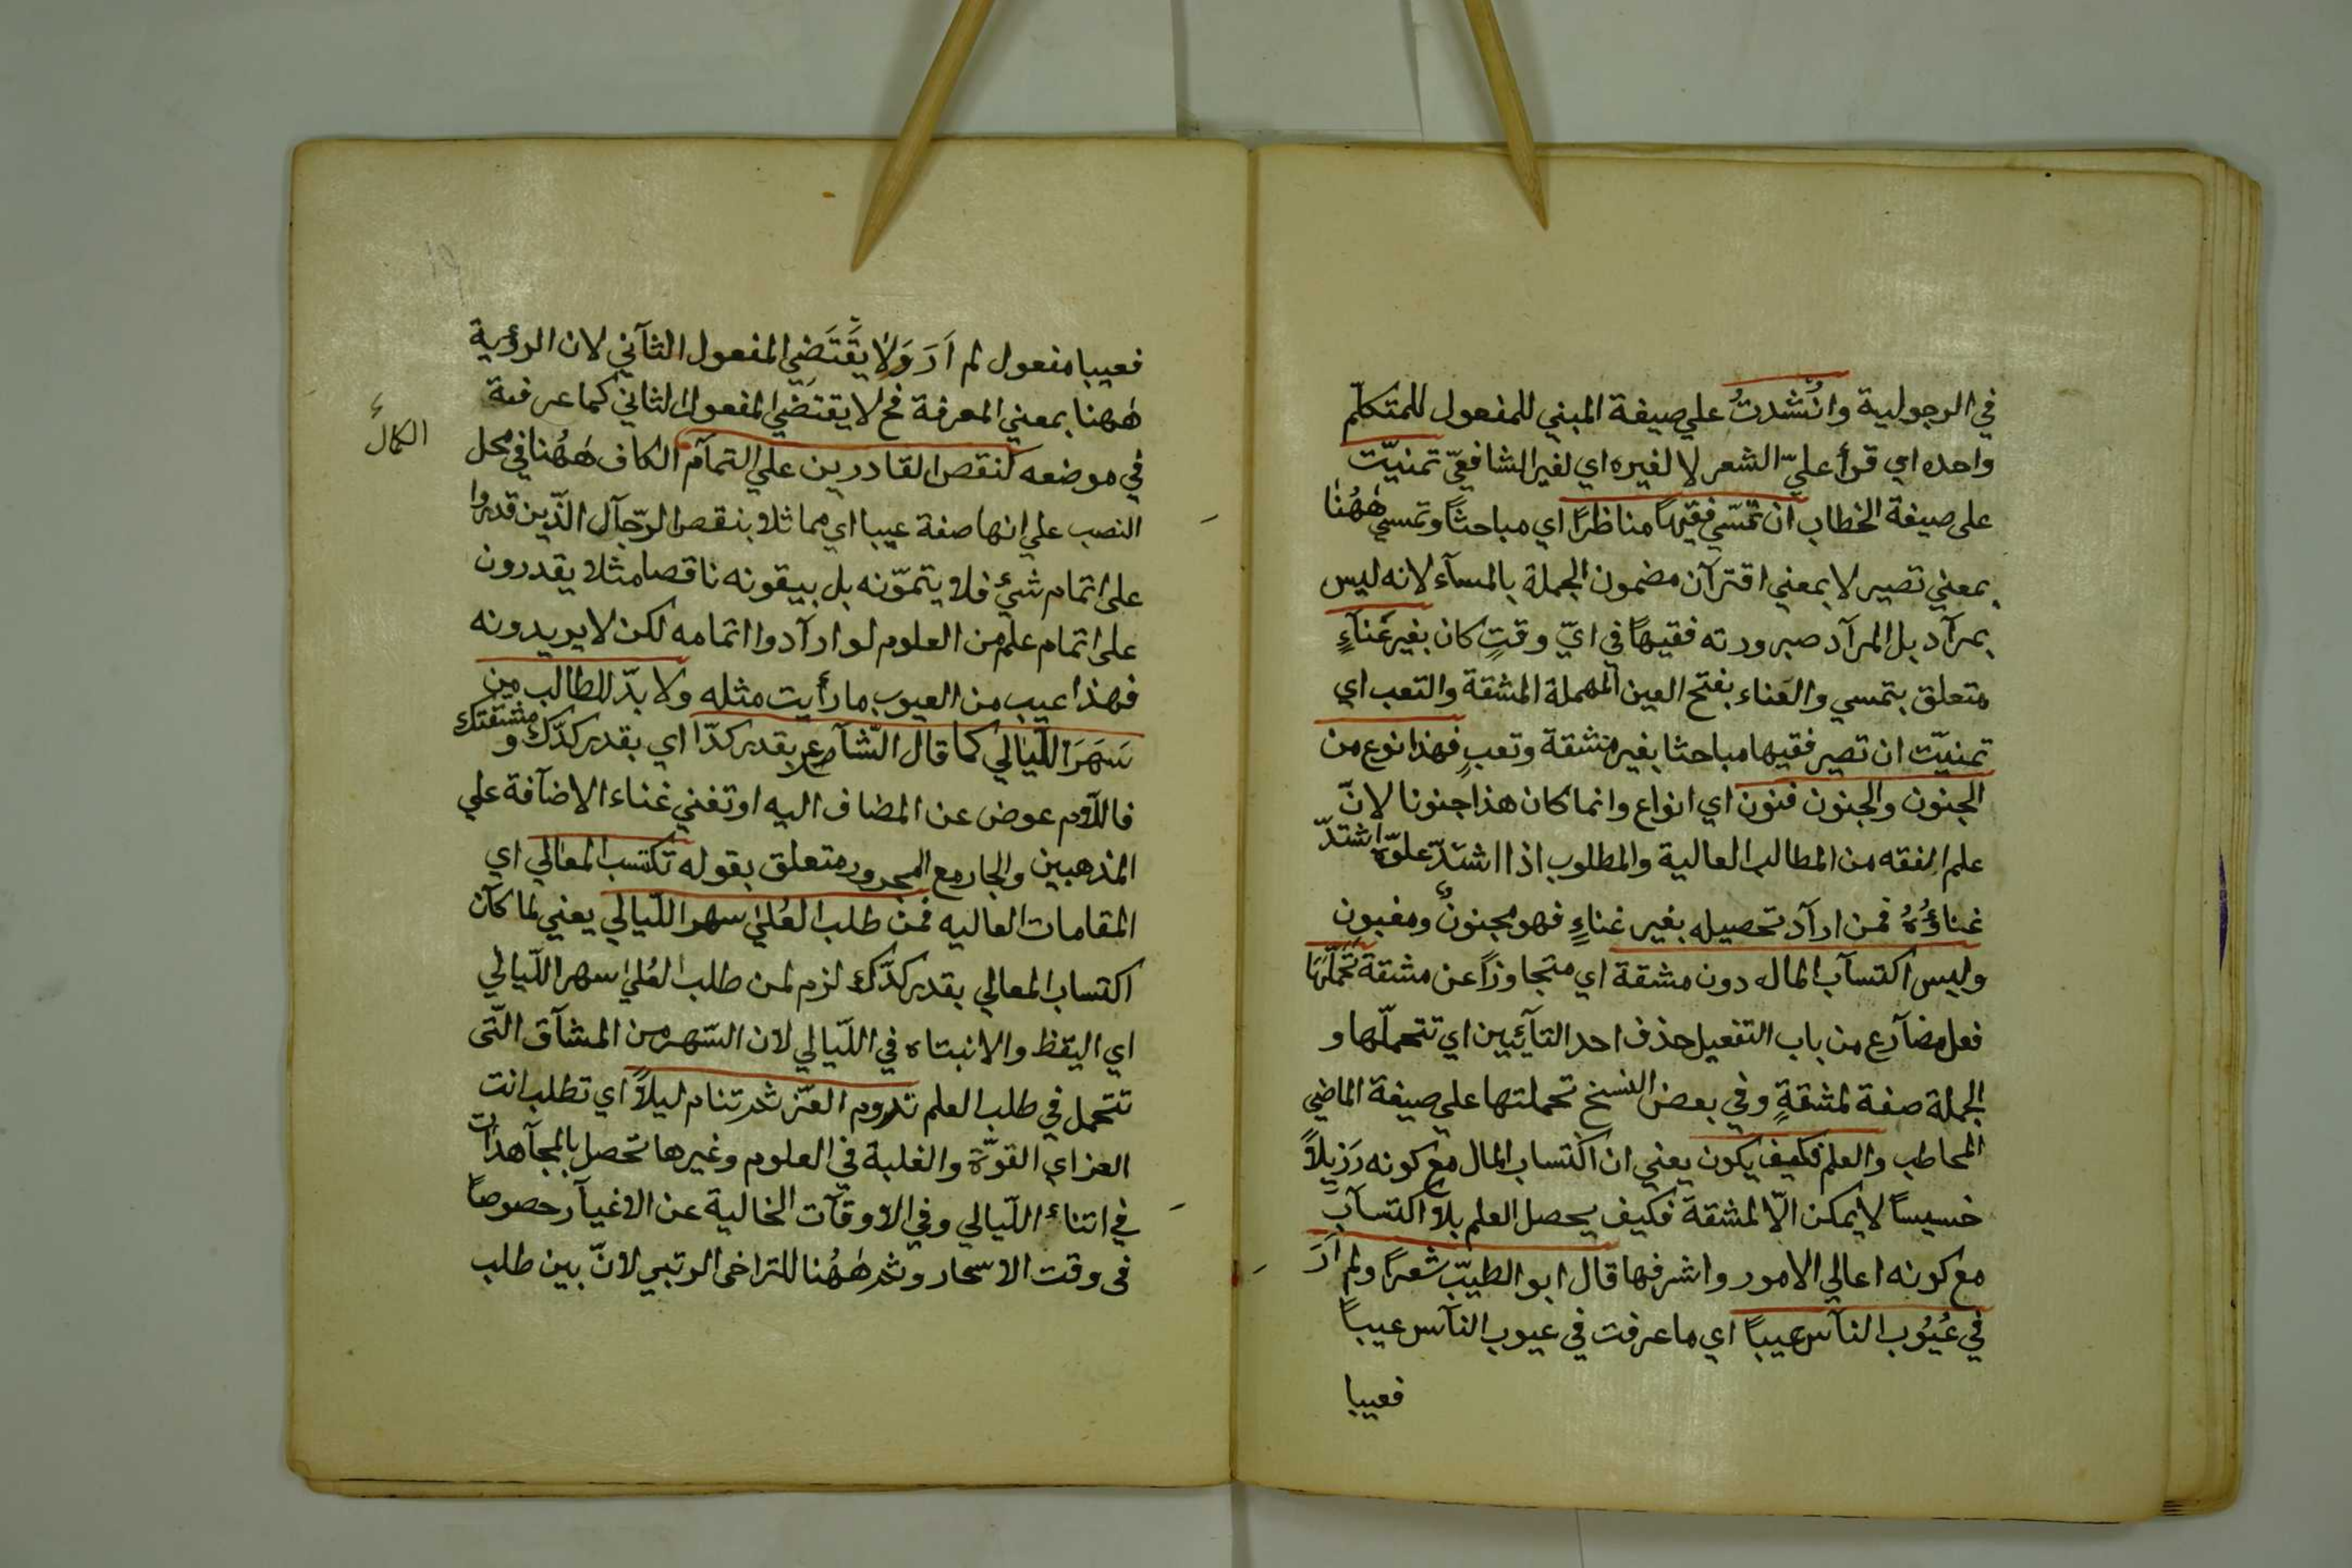 في الرجولية وانشدتُ علي صيغة المبني للمفعول للمتكلّم
واحده اي قرأ عليّ الشعر لا لغيره اي لغير الشافعيّ تمنيّت
على صيغة الخطاب ان تمسّي فقيهاً مناظرًا اي مباحثاً وتمسي هٰهُنا
بمعني تصير لا بمعني اقترآن مضمون الجملة بالمسآء لانه ليس
بمرآد بل المرآد صيرورته فقيهاً في ايّ وقتٍ كان بغير عَنآءٍ
متعلق بتمسي والعَناء بفتح العين المهملة المشقة والتعب اي
تمنيّت ان تصير فقيها مباحثا بغير مشقة وتعبٍ فهذا نوع من
الجنون والجنون فنون اي انواع وانما كان هذا جنونا لانّ
علم الفقه من المطالب العالية والمطلوب اذا اشتدّ علوّه اشتدّ
غناؤُهُ فمن ارآد تحصيله بغير غناءٍ فهو مجنونٌ ومغبون
وليس اكتسآب الماله دون مشقة اي متجاوزاً عن مشقة تَحَمَّلَهَا
فعل مضآرع من باب التفعيل حذف احد التآئيين اي تتحملّها و
الجملة صفة لمشقةٍ وفي بعض النسخ تحملتها علي صيغة الماضي
المخاطب والعلم فكيف يكون يعني ان اكتساب المال مع كونه رَزيلاً
خسيساً لا يمكن الّا لمشقة فكيف يحصل العلم بلا اكتسآبٍ
مع كونه اعالي الامور واشرفها قال ابو الطيبّ شعراً ولم اَرَ
في عُيُوب النآس عيباً اي ما عرفت في عيوب النآس عيباً
فعيبا
فعيبا مفعول لم اَرَ وَلا يقَتَضي المفعول الثآني لان الرؤية
هٰهنا بمعني المعرفة فح لا يقتضي المفعول الثاني كما عرفته
في موضعه كنقص القادرين علي التمآم الكاف هٰهُنا في محل
الكمال
النصب علي انها صفة عيبا اي مماثلا بنقص الرّجآل الذّين قدروا
على اتمام شئ فلا يتموّنه بل يبقونه ناقصا مثلا يقدرون
على اتمام علم من العلوم لو ارآدوا اتمامه لكن لا يريدونه
فهذا عيب من العيوب ما رأيت مثله ولا بدّ للطالب من
سَهَرَ اللّيالي كما قال الشّآعر ع بقدر كدّا اي بقدر كدّك ومشقتك
فاللاّم عوض عن المضاف اليه او تغني غناء الاضآفة علي
المذهبين والجار مع المجرور متعلق بقوله تكتسب المعالي اي
المقامات العاليه فمن طلب العُلي سهر اللّيالي يعني لما كآن
اكتساب المعالي بقدر كدّك لزم لمن طلب العُلي سهر اللّيالي
اي اليقظ والانبتاه في اللّيالي لان السّهر من المشآق التّى
تتحمل في طلب العلم تروم العّز ثم تنام ليلاً اي تطلب انت
العز اي القوّة والغلبة في العلوم وغيرها تحصل بالمجآهدات
في اثناء اللّيالي وفي الاوقآت الخالية عن الاغيآر حصوصاً
فى وقت الاسحار وثم هٰهُنا للتراخى الرتبي لانّ بين طلب